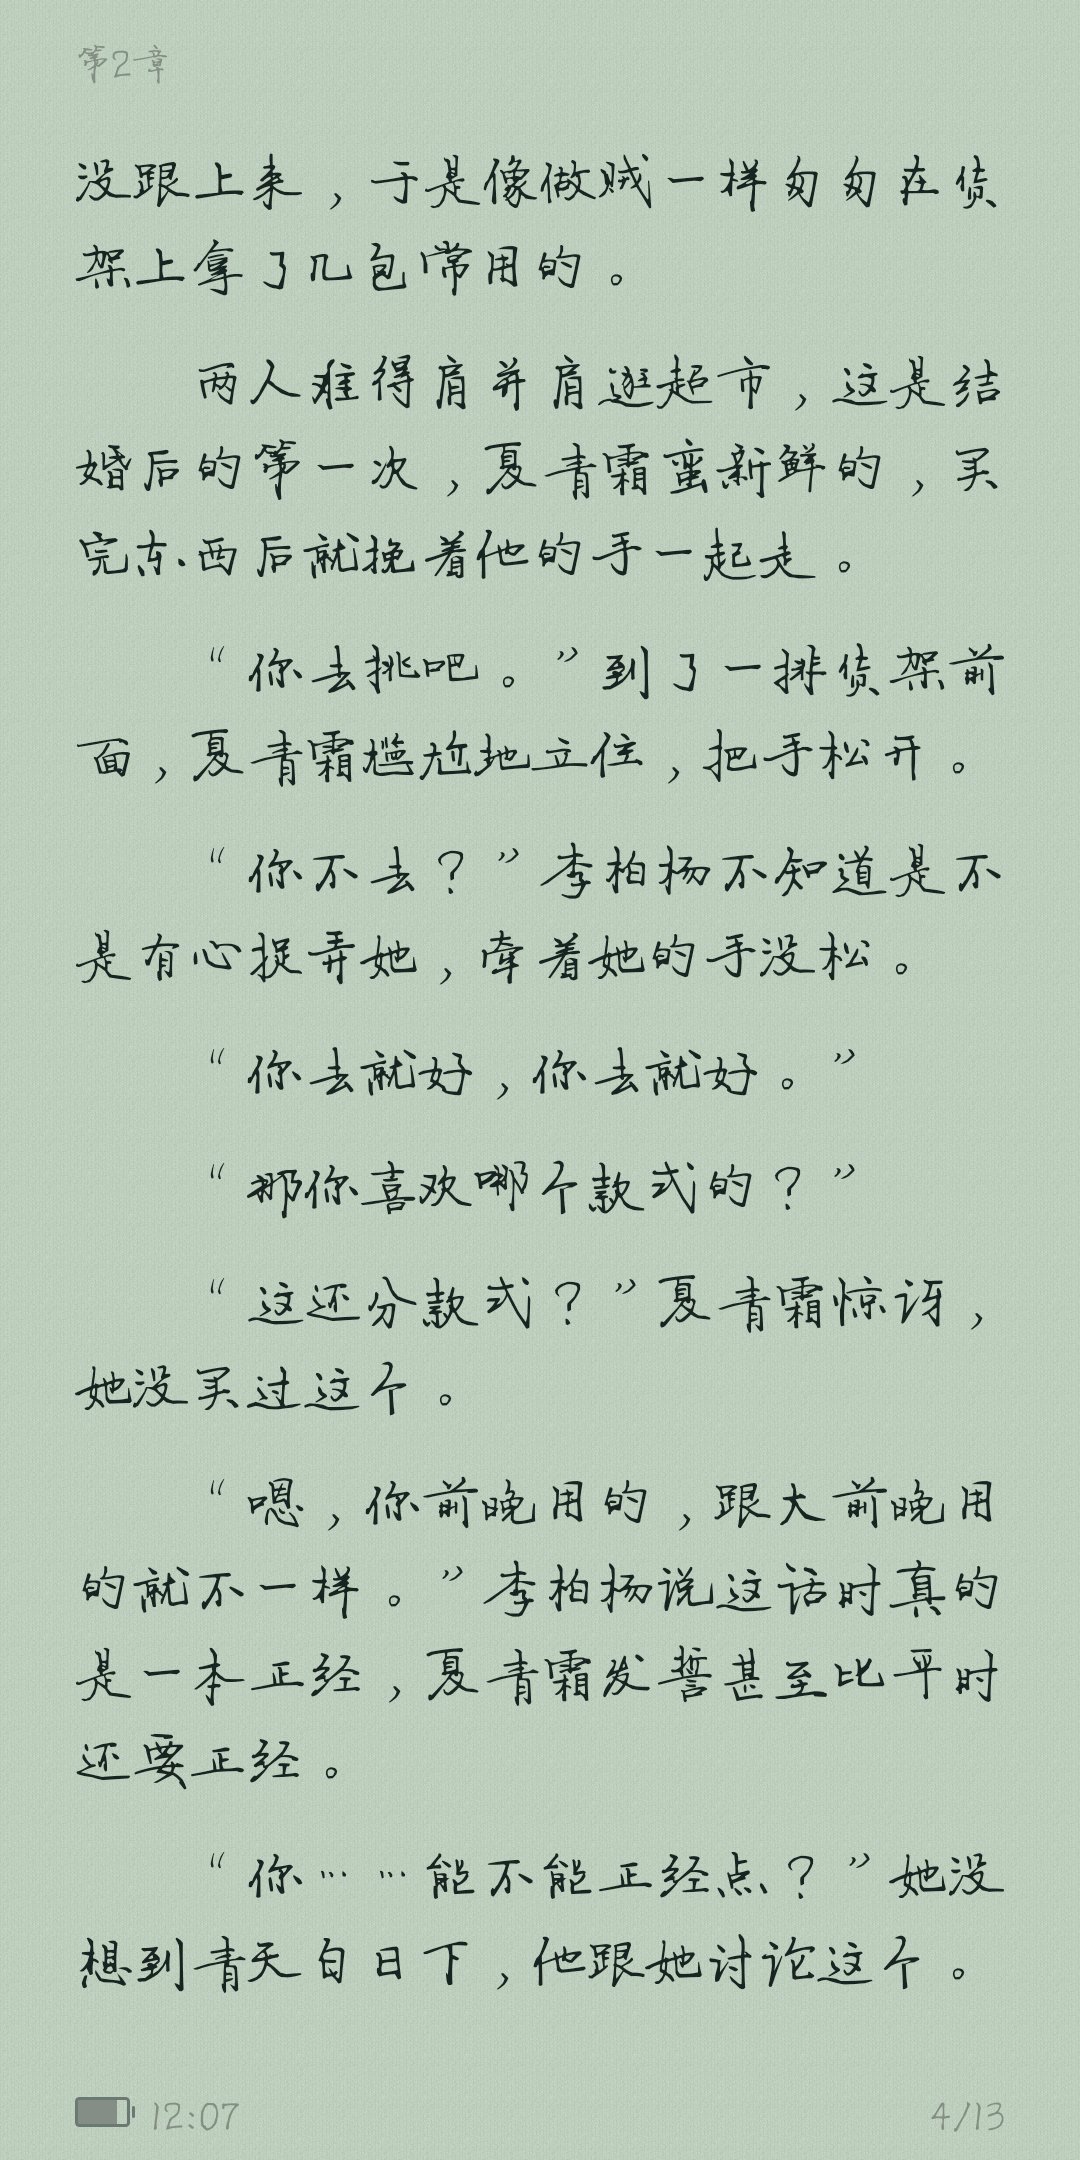 第2章
没跟上来，于是像做贼一样匆匆在货
架上拿了几包常用的。
两人难得肩并肩逛超市，这是结
婚后的第一次，夏青霜蛮新鲜的，买
完东西后就挽着他的手一起走。
“你去挑吧。”到了一排货架前
面，夏青霜尴尬地立住，把手松开。
“你不去？”李柏杨不知道是不
是有心捉弄她，牵着她的手没松。
“你去就好，你去就好。”
“那你喜欢哪个款式的？”
“这还分款式？”夏青霜惊讶，
她没买过这个。
“嗯，你前晚用的，跟大前晚用
的就不一样。”李柏杨说这话时真的
是一本正经，夏青霜发誓甚至比平时
还要正经。
“你……能不能正经点？”她没
想到青天白日下，他跟她讨论这个。
12:07
4/13